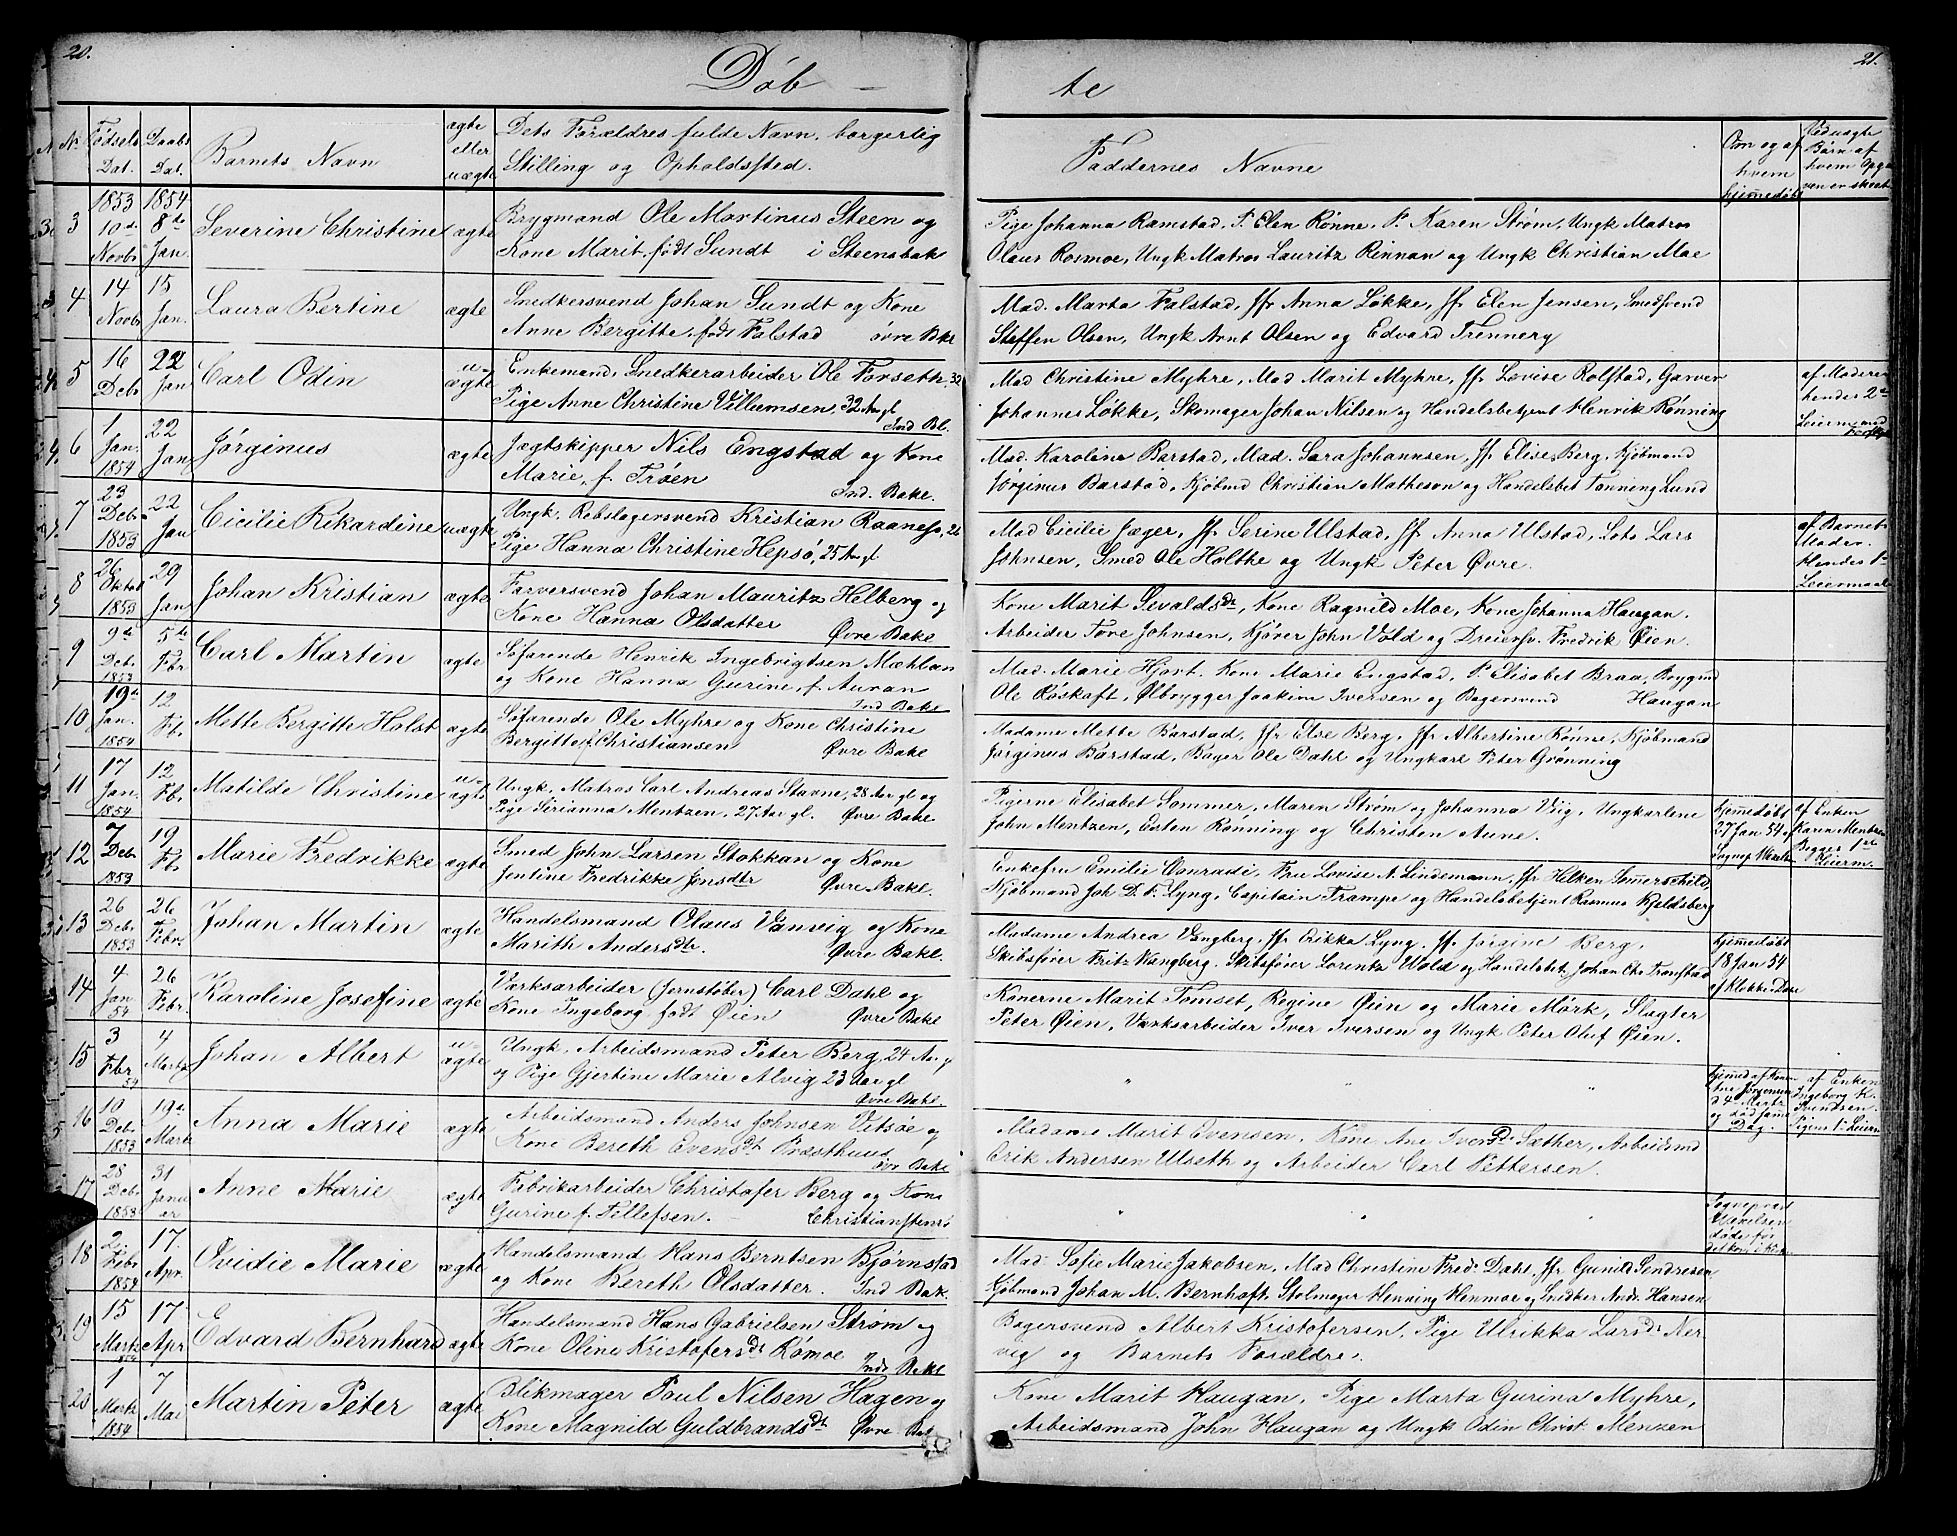 20.
Döb —
Nr.
Fødsels Dat.
Daabs Dat.
Barnets Navn
ægte eller uægte
Dets Forældres fulde Navn, borgerlig
Stilling og Opholdssted.
3 1853 10de Novbr 1854 8de Jan. Severine Christine ægte Brygmand Ole Martinus Steen og
Kone Marit, født Sundt i Steensbak
4 14 Novbr 15 Jan. Laura Bertine ægte Snedkersvend Johan Sundt og Kone
Anne Bergitte, født Falstad øvre Bakl
5 16 Debr 22 Jan Carl Odin u-ægte Enkemand, Snedkerarbeider Ole Forseth, 32
Pige Anne Christine Villumsen, 32 Aar gl
Ind Bl.
6 1 Jan. 1854 22 Jan Jørginus ægte Jægtskipper Nils Engstad og Kone
Marie, f. Trøen Ind. Bakl.
7 23 Debr 1853 22 Jan Cicilie Rikardine uægte Ungk. Rebslagersvend Kristian Raanes,
Pige Hanna Christine Hepsø, 25 Aar gl
8 26 Oktob 1853 29 Jan Johan Kristian ægte Farversvend Johan Mauritz Helberg og
Kone Hanna Olsdatter Øvre Bakl
9 9de Deb. 1853 5te Fbr Carl Martin ægte Søfarende Henrik Ingebrigtsen Mæhlan
og Kone Hanna Gurine, f. Auran
Ind Bakl
10 19de Jan. 1854 12 Fb. Mette Bergitte Holst ægte Søfarende Ole Myhre og Kone Christine
Bergitte f. Christiansen Øvre Bakl
11 17 Jan. 1854 12 Fb. Matilde Christine u-ægte Ungk. Matros Carl Andreas Stavne, 28 Aar gl og
Pige Sirianna Mentzen, 27 Aar gl. Øvre Bakl.
12 7 Deb. 1853 19 Fb. Marie Fredrikke ægte Smed John Larsen Stokkan og Kone
Jentine Fredrikke Jensdtr Øvre Bakl.
13 26 Deb. 1853 26 Febr Johan Martin ægte Handelsmand Olaus Vanvig og Kone
Marith Andersdtr. Øvre Bakl.
14 4 Jan 54 26 Febr. Karoline Josefine ægte Værksarbeider (Jernstøber) Carl Dahl og
Kone Ingeborg født Øien Øvre Bakl
15 3 Fbr 54 4 Marts Johan Albert u-ægte Ungk. Arbeidsmand Peter Berg, 24 Aar gl
og Pige Gjertine Marie Alvig 23 Aar gl
Øvre Bakl.
16 10 Deb. 1853 19de Marts Anna Marie ægte Arbeidsmand Anders Johnsen Vitsøe og
Kone Bereth Evensdt Præsthuus
Øvre Bakl
17 28 Deb. 1853 31 Januar Anne Marie ægte Fabrikarbeider Christofer Berg og Kone
Gurine f. Tellefsen. — Christianstens
18 2. Febr 1854 17. Apr. Ovidie Marie ægte Handelsmand Hans Berntsen Bjørnstad
og Kone Bereth Olsdatter. Ind Bak.
19 15 Marts 17 Apr. Edvard Bernhard ægte Handelsmand Hans Gabrielsen Strøm og
Kone Oline Kristofersdt Rømoe Indr Bakl
20 1 Marts 1854 7 Mai Martin Peter ægte Blikmager Poul Nilsen Hagen og
Kone Magnild Guldbrandsdt Øvre Bak
21.
te
Faddernes Navne
Om og af hvem hjemmedøbt
Ved uægte Børn af hvem Opgaven er skeet
Pige Johanna Ramstad, P. Elen Rønne, P. Karen Strøm, Ungk Matros
Olaus Rosmoe, Ungk Matros Lauritz Rinnan og Ungk Christian Moe
Mad. Marta Falstad, Jfr Anna Løkke, Jfr Elen Jensen, Smedsvend
Steffen Olsen, Ungk Arnt Olsen og Edvard Trennery
Mad Christine Myhre, Mad Marit Myhre, Jfr Lovise Rolfstad, Garver
Johannes Løkke, Skomager Johan Nilsen og Handelsbetjent Henrik Rønning
af Moderen hendes 2det Leiermaal
Mad. Karoline Barstad, Mad. Sara Johannsen, Jfr Elise Berg, Kjøbmand
Jørginus Barstad, Kjøbmd Christian Matheson og Handelsbet Tønning Lund
Mad Cicilie Jæger, Jfr Serine Ulstad, Jfr Anna Ulstad, Lots Lars
Johnsen, Smed Ole Holtke og Ungk Peter Øvre.
af Barnets Moder. hendes 1ste Leiermaal
Kone Marit Sevaldsdt, Kone Ragnild Moe, Kone Johanna Haugan.
Arbeider Tore Johnsen, Kjører John Vold og Dreiersv. Fredrik Øien.
Mad. Marie Hjort, Kone Marie Engstad, P. Elisabet Braa, Brygmd
Ole Røskaft, Ølbrygger Joakim Iversen og Bagersvend Haugan
Madame Mette Barstad, Jfr Else Berg, Jfr Albertine Rønne, Kjøbmand
Jørginus Barstad, Bager Ole Dahl og Ungkarl Peter Grønning
Pigerne Elisabet Sommer, Maren Strøm og Johanna Viig, Ungkarlene
John Mentzen, Esten Rønning og Christen Aune.
hjemmedøbt 27 Jan 54 af Sognep Wexelsen
af Enken Karen Mentzen Begges 1ste Leierm.
Enkefru Emilie Conradi, Fru Lovise A. Lindemann, Jfr Helken Sommerschild,
Kjøbmand Joh D. F. Lyng, Capitain Trampe og Handelsbetjent Rasmus Kjeldsberg
Madame Andrea Vangberg, Jfr Erikka Lyng, Jfr Jørgine Berg,
Skibsfører Fritz Wangberg, Skibsfører Lorentz Wold og Handelsbet. Johan Chr Tronstad
hjemmedøbt 18 Jan 54 af Klokker Dahl
Konerne Marit Tomset, Regine Øien og Marie Mørk, Slagter
Peter Øien, Værksarbeider Iver Iversen og Ungk Peter Oluf Øien.
" " "
hjemmed af Konen Ane Jørgensen d 4de Marts og død samme Dag.
af Enken Ingeborg K. Svendsen. Pigens 1ste Leierm
Madame Marit Evensen, Kone Ane Iversdt Sæther, Arbeidsmd
Erik Andersen Ulseth og Arbeider Carl Pettersen.
" "
Sogneprest Wexelsen døde før det kom i Kirken
Mad. Sofie Marie Jakobsen, Mad Christine Fredr Dahl, Jfr Gunild Sendresen
Kjøbmand Johan M. Bernhoft, Stolmager Henning Henmoe og Snedker Andr. Hansen
Bagersvend Albert Kristofersen, Pige Ulrikka Larsdt Ner-
vig og Barnets Forældre.
Kone Marit Haugan, Pige Marta Gurina Myhre,
Arbeidsmand John Haugan og Ungk Odin Christ. Menzen